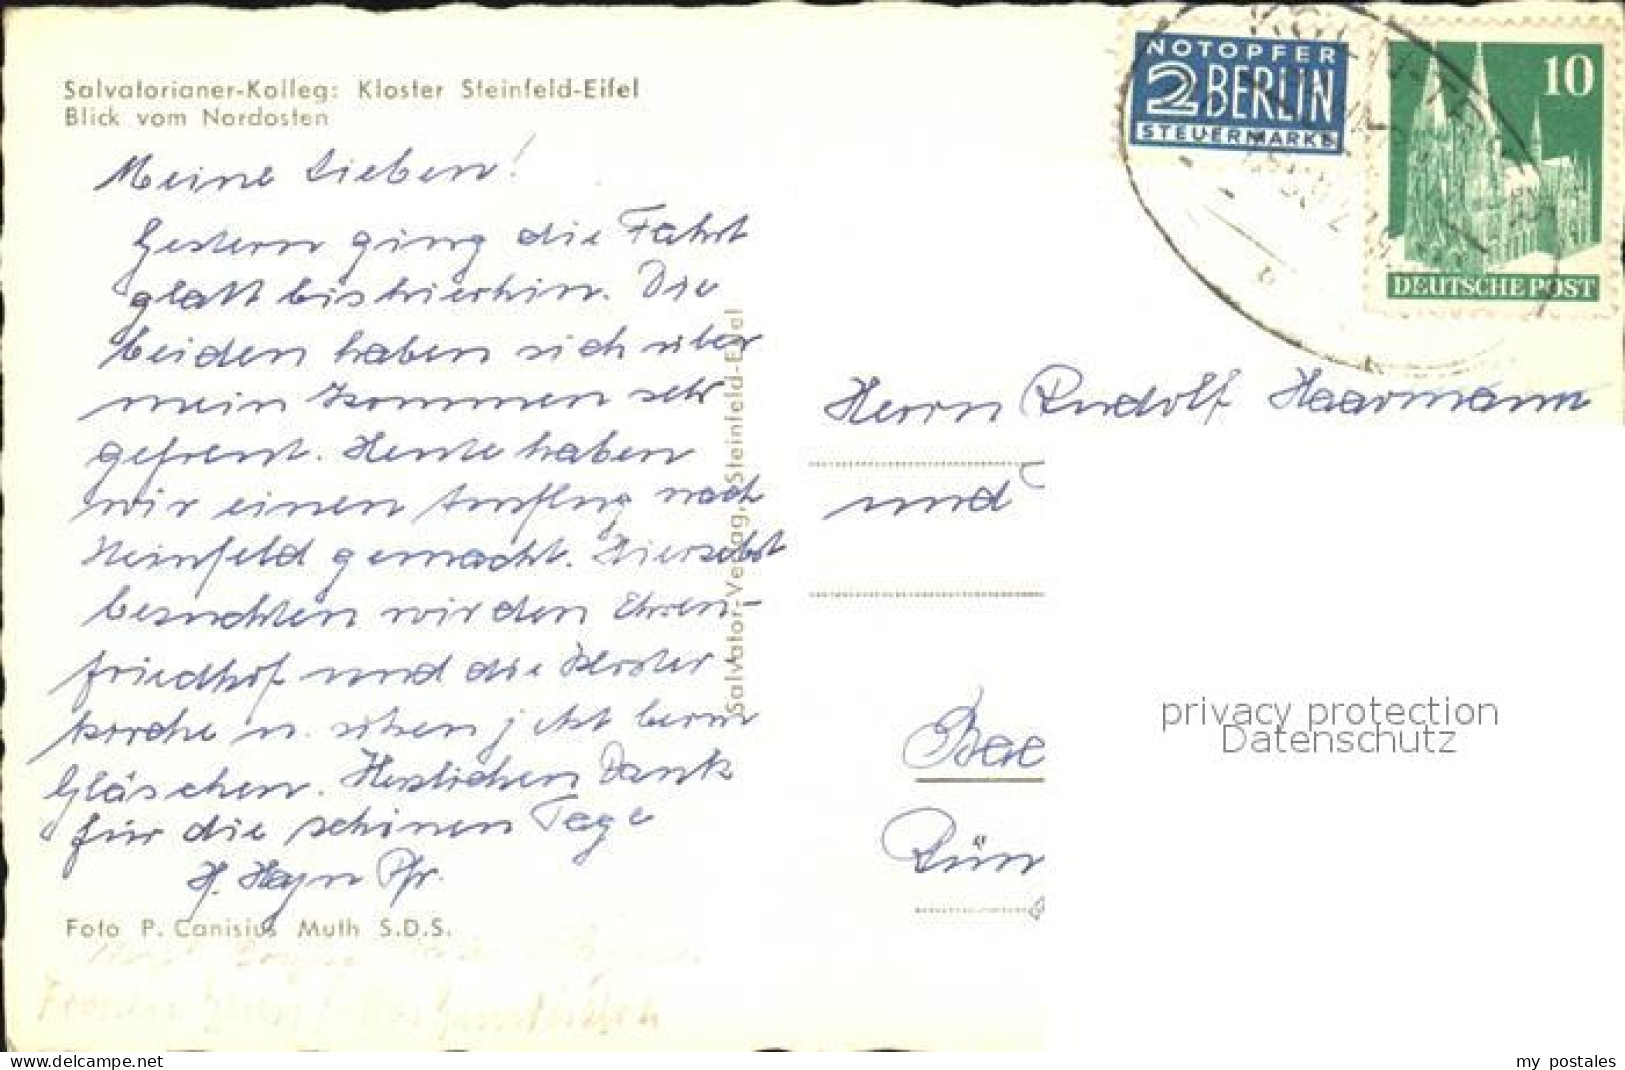 Salvatorianer-Kolleg: Kloster Steinfeld-Eifel
Blick vom Nordosten
Meine Lieben!
Gestern ging die Fahrt
glatt bis hierhin. Die
beiden haben sich über
mein Kommen sehr
gefreut. Heute haben
wir einen Ausflug nach
Steinfeld gemacht. Hierselbst
besuchten wir den Ehren-
friedhof und die Kloster
kirche u. sitzen jetzt beim
Gläschen. Herzlichen Dank
für die schönen Tage
H. Hayn Pfr.
Foto P. Canisius Muth S.D.S.
Salvator-Verlag, Steinfeld-Eifel
NOTOPFER
2 BERLIN
STEUERMARKE
10
DEUTSCHE POST
Herrn Rudolf Haarmann
und
Bae
Rün
privacy protection
Datenschutz
www.delcampe.net
my_postales